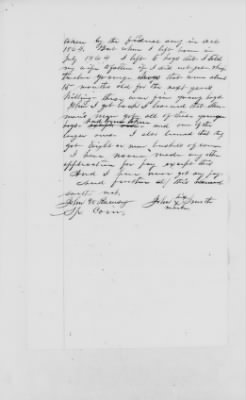 taken by the federal army in Oct
1864. But when I left home in
July 1864 I left 8 hogs that I told
my wife together if I did not get
twelve younger that were about
15 months old for the next years
killing. they were fine young hogs
When I got back I learned that
off all of these young
hogs and one of the
larger ones. I also learned that they
got eight or nine bushels of corn
I have never made any other
application for pay except this
And I have never got any pay
And further sd/ this
saith not.
John his Smith
X
mark
Sp Com.